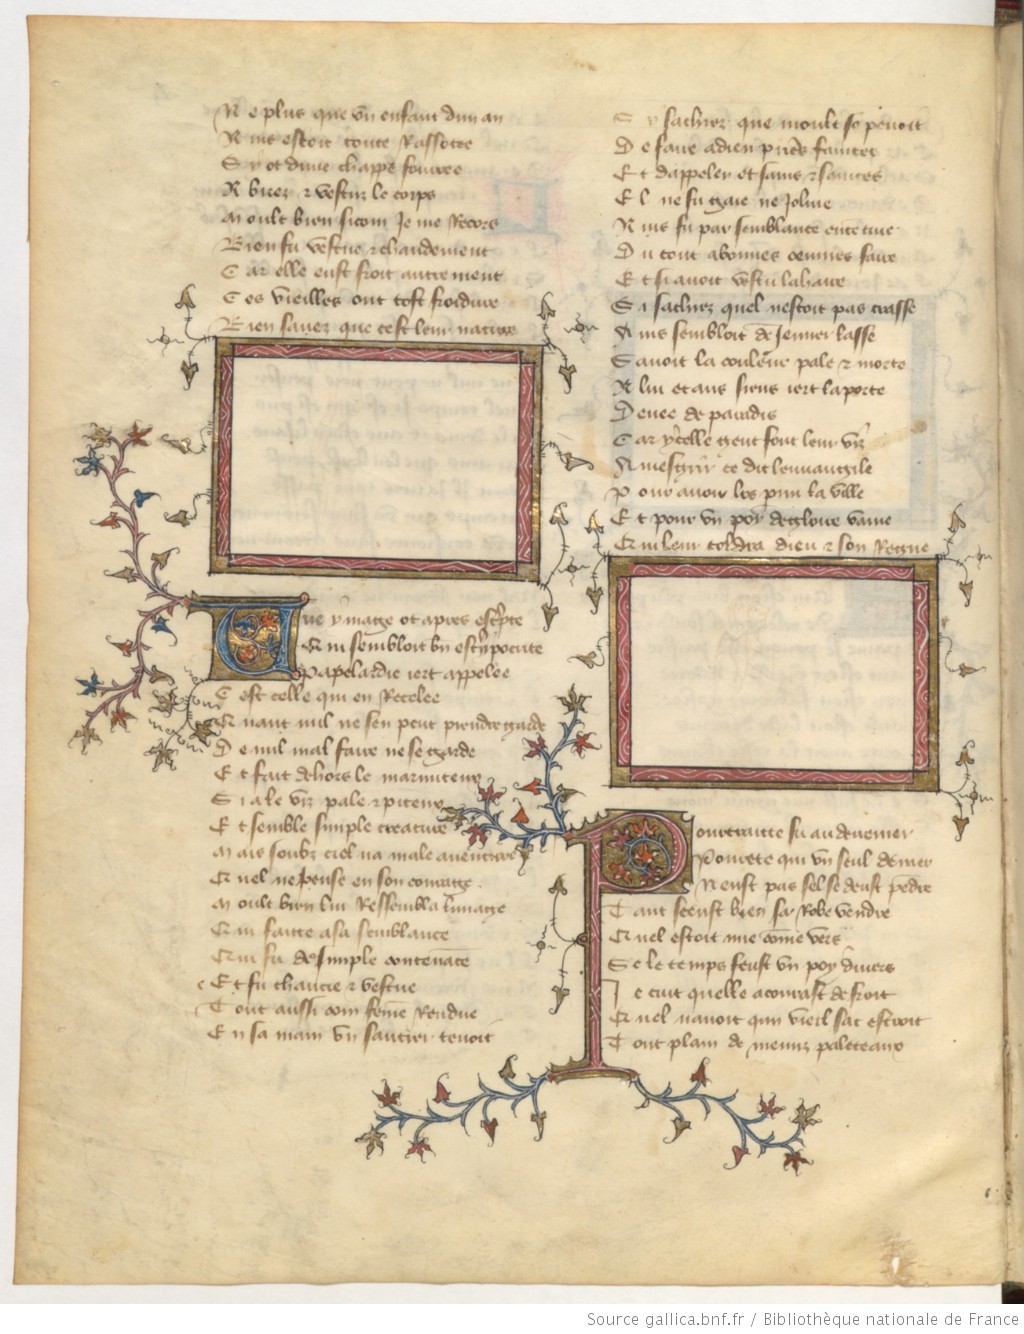 N e plus que vn enfant dun an
M ais estoit toute Rassotee
S i ot dune chappe fourree
A brier & vestir le corps
M oult bien sicom Je me Recors
B ien fu vestue & chaudement
C ar elle eust froit autrement
C es vieilles ont tost froidure
B ien sauez que cest leur nature
Vne ymage ot apres escripte
Q ui sembloit bn estre ypocrite
Papelardie iert appelee
C est celle qui en Recelee
Q uant nul ne sen peut prendre garde
D e nul mal faire ne se garde
E t fait dehors le marmiteux
S i a le vis pale & piteux
E t semble simple creature
M ais soubz ciel na male auenture
Q uel ne pense en son courage
M oult bien lui Ressembla lymage
Q ui faitte a sa semblance
Q ui fu de simple contenance
E t fu chaucie & vestue
T out aussi com feme Rendue
E n sa main vn sautier tenoit
S i sachiez que moult se penoit
D e faire a dieu prieres faintes
E t dappeler et sains & saintes
E l ne fu gaie ne Jolive
M ais fu par semblance ententiue
D u tout a bonnes oeuures faire
E t si auoit vestu la haire
S i sachiez quel nestoit pas crasse
A ins sembloit de Jeuner lasse
S auoit la couleur pale & morte
A lui et aus siens iert la porte
D euee de paradis
C ar ycelle gent font leur vis
A mesgrir ce dit leuuangile
P our auoir los par la ville
E t pour vn por de gloire vaine
Q ui leur toldra dieu & son Regne
Pourtraitte fu au derrenier
Pourete qui vn seul denier
N eust pas sel se deust pendre
T ant sceust bien sa Robe vendre
Q uel estoit nue come vers
S e le temps feust vn poy diuers
J e cuit quelle acourast de froit
Q uel nauoit qun vieil sac estroit
T out plain de menuz paleteaux
Source gallica.bnf.fr / Bibliothèque nationale de France